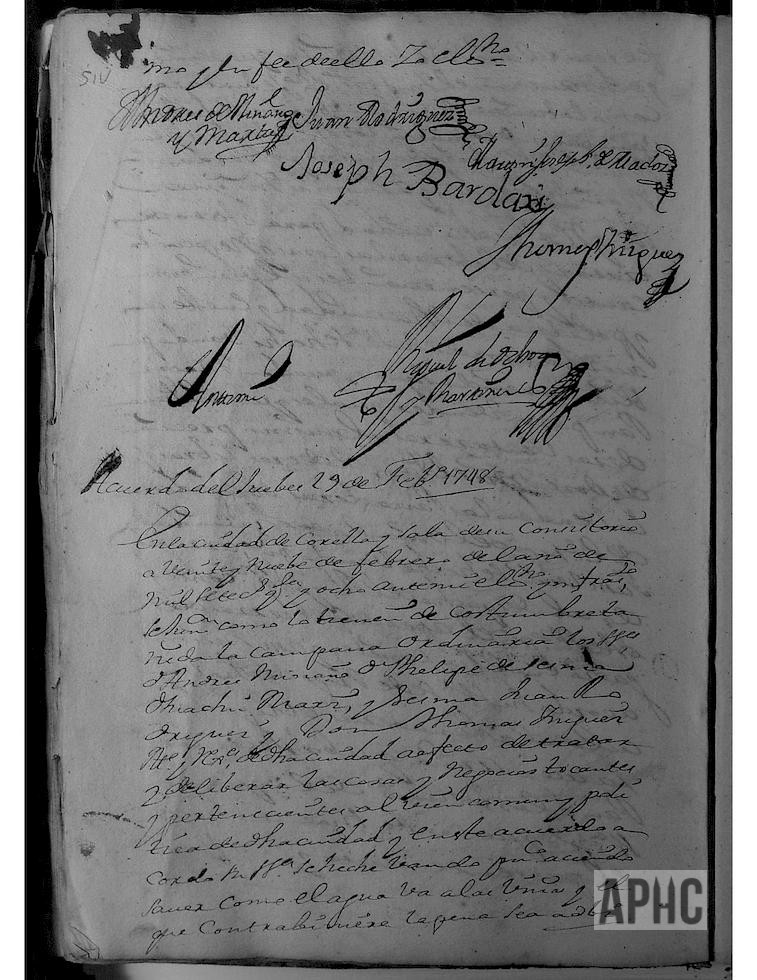 51v
mo y en fee de ello Yo el ss.no =
Andres de Miñano
y Martinez
Juan Rodriguez
Joseph Bardaxi
Thomas Yñiguez
Ante mi
Miguel de Ochoa
y Martinez
Acuerdo del Juebes 29 de Feb.o 1748
En la ciudad de Corella y sala de su Consistorio
a Veinte y Nuebe de febrero del año de
mil setez.s y q.ta y ocho ante mi el ss.no ynfras.to
se han como lo tienen de costumbre ta
ñida la campana Ordinaria los SS.es
D.n Andres Miñano D.n Phelipe de Sesma
Martz. y Sesma Juan Ro
driguez y Don Thomas Yñiguez
Alc.e y Rex.s de dha ciudad a efecto de tratar
y deliberar las cosas y Negocios tocantes
y pertenecientes al vien comun y poli
tica de dha ciudad y en este acuerdo a
cordo su S.a se heche Vando pu.co aciendo
saver como el agua va a las Viñas y el
que Contrabiniere la pena sea
APHC